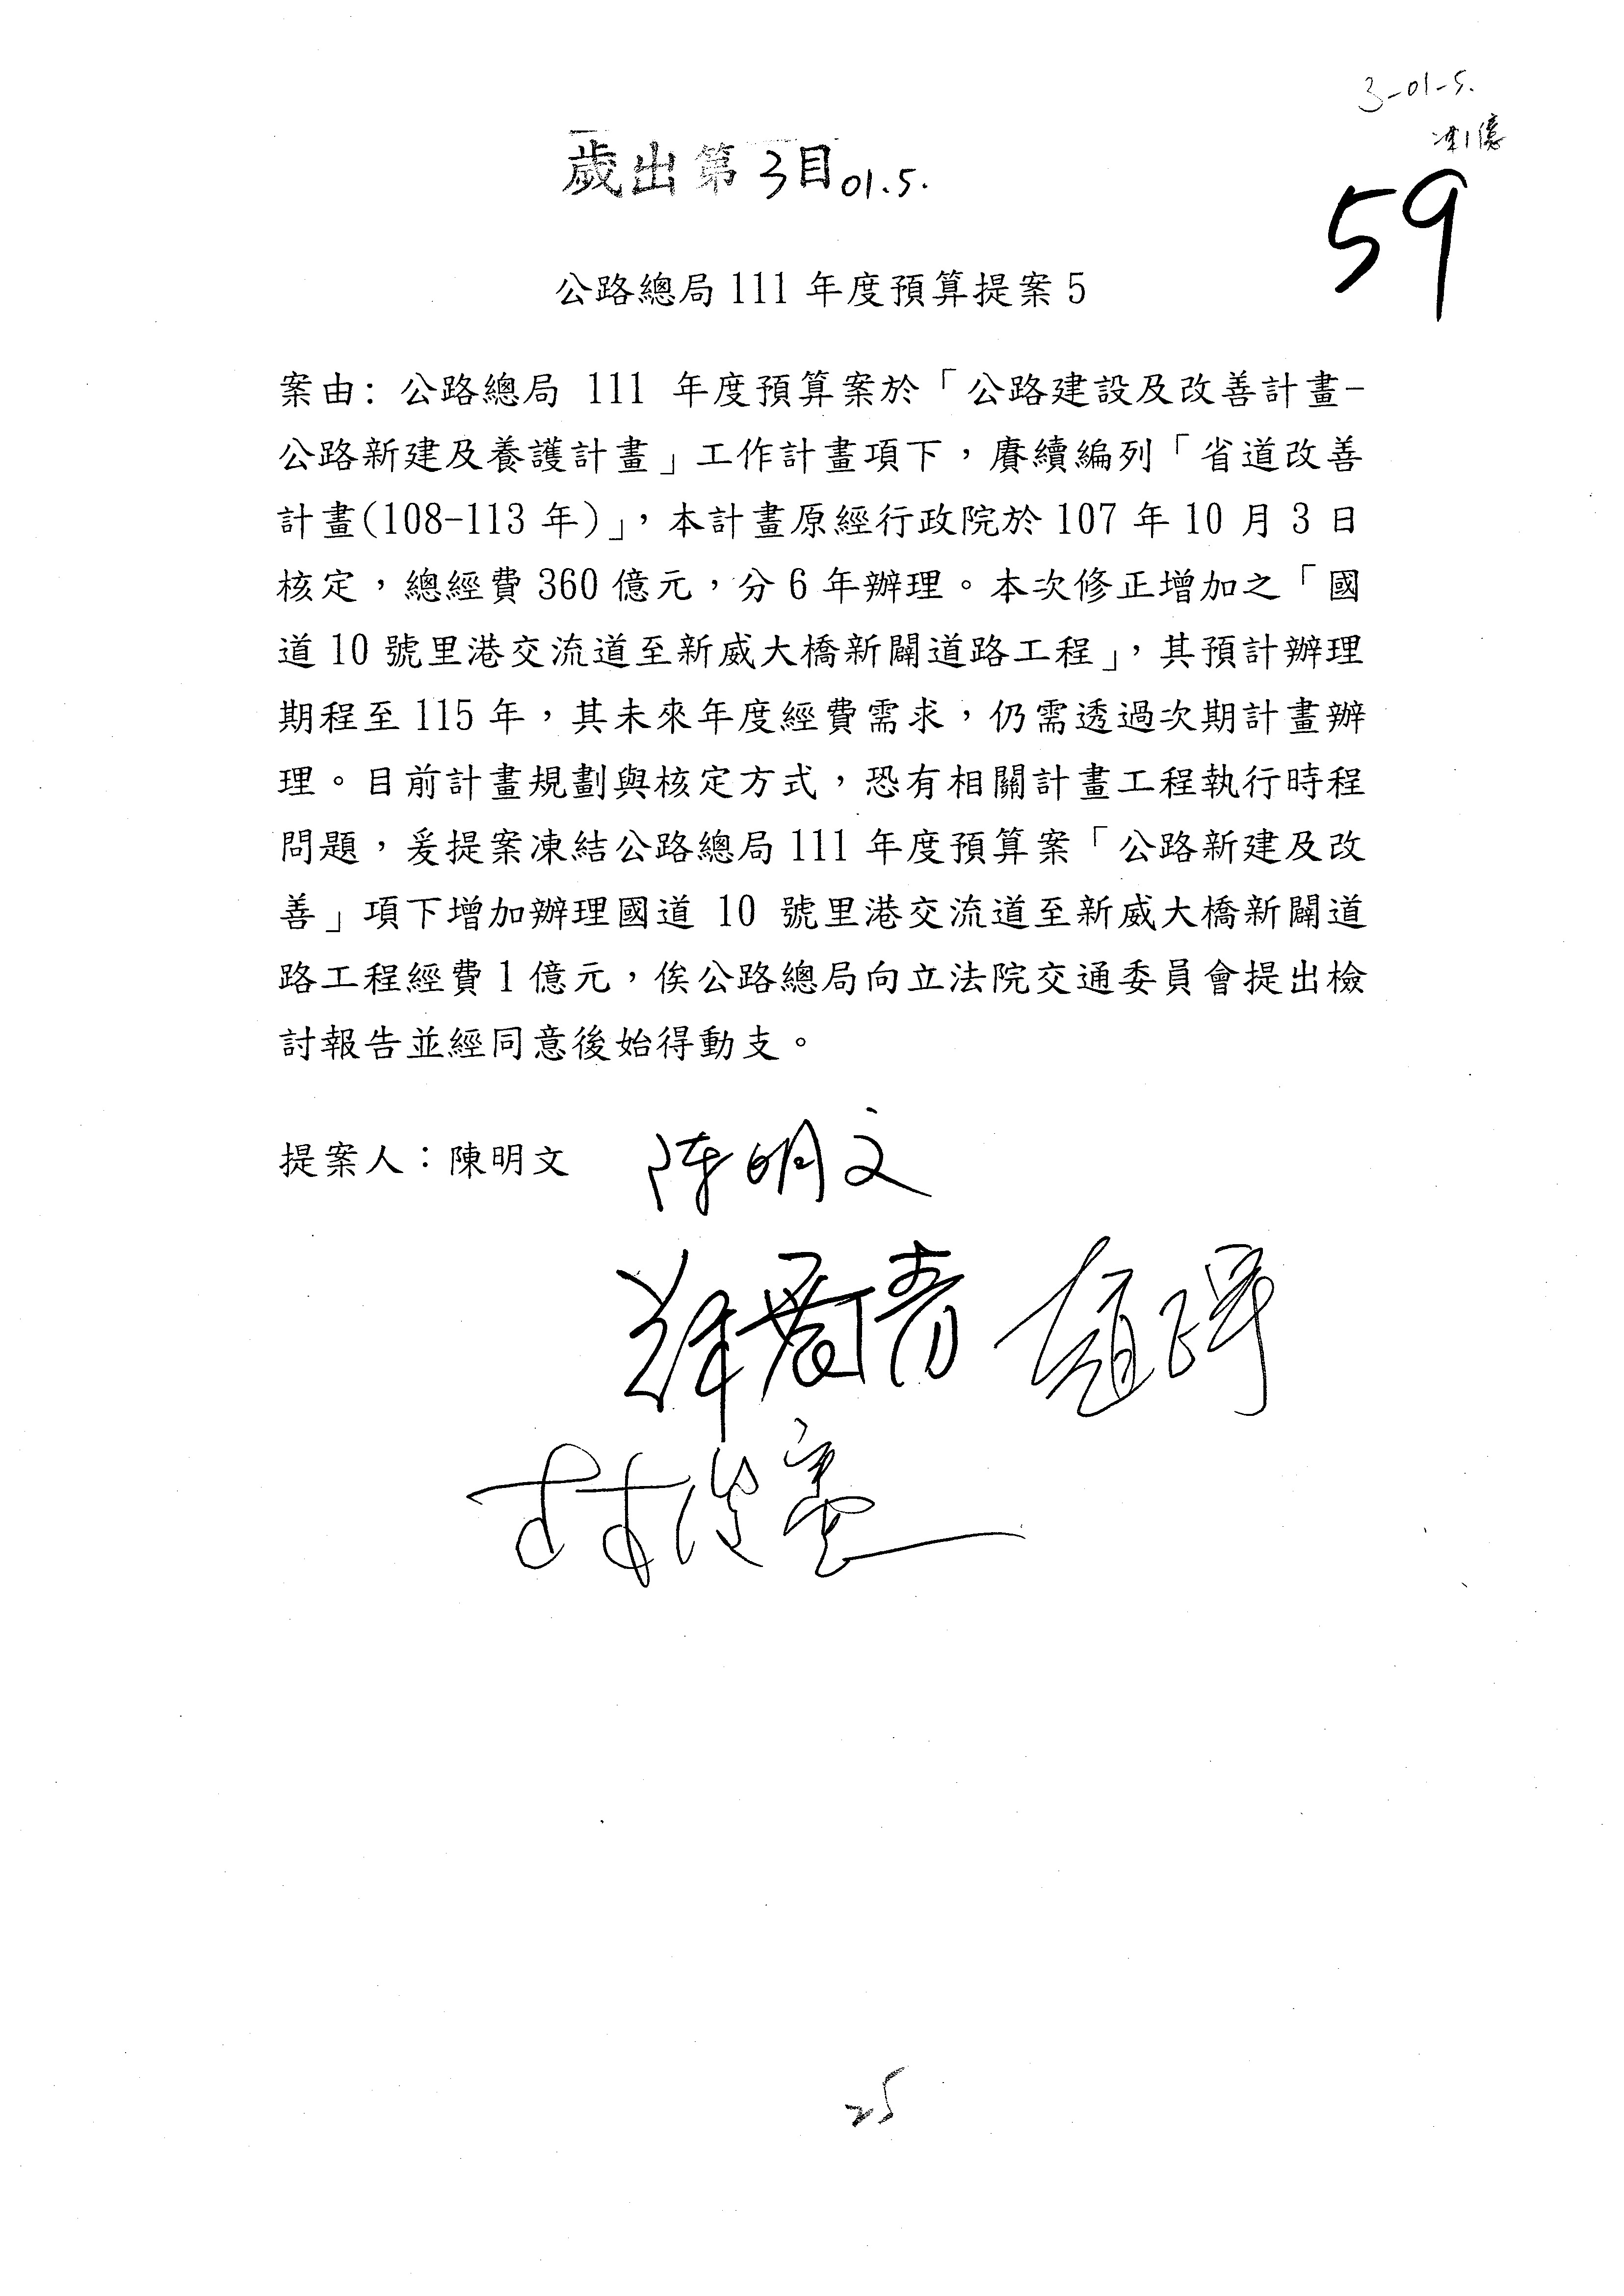 3-01-5.
凍1億
歲出第3目01.5.
59
公路總局111年度預算提案5
案由:公路總局 111 年度預算案於「公路建設及改善計畫-
公路新建及養護計畫」工作計畫項下，賡續編列「省道改善
計畫(108-113年)」，本計畫原經行政院於107年10月3日
核定，總經費360億元，分6年辦理。本次修正增加之「國
道10號里港交流道至新威大橋新闢道路工程」，其預計辦理
期程至115年，其未來年度經費需求，仍需透過次期計畫辦
理。目前計畫規劃與核定方式，恐有相關計畫工程執行時程
問題，爰提案凍結公路總局111年度預算案「公路新建及改
善」項下增加辦理國道 10 號里港交流道至新威大橋新闢道
路工程經費1億元，俟公路總局向立法院交通委員會提出檢
討報告並經同意後始得動支。
提案人：陳明文 陳明文
林俊憲
25